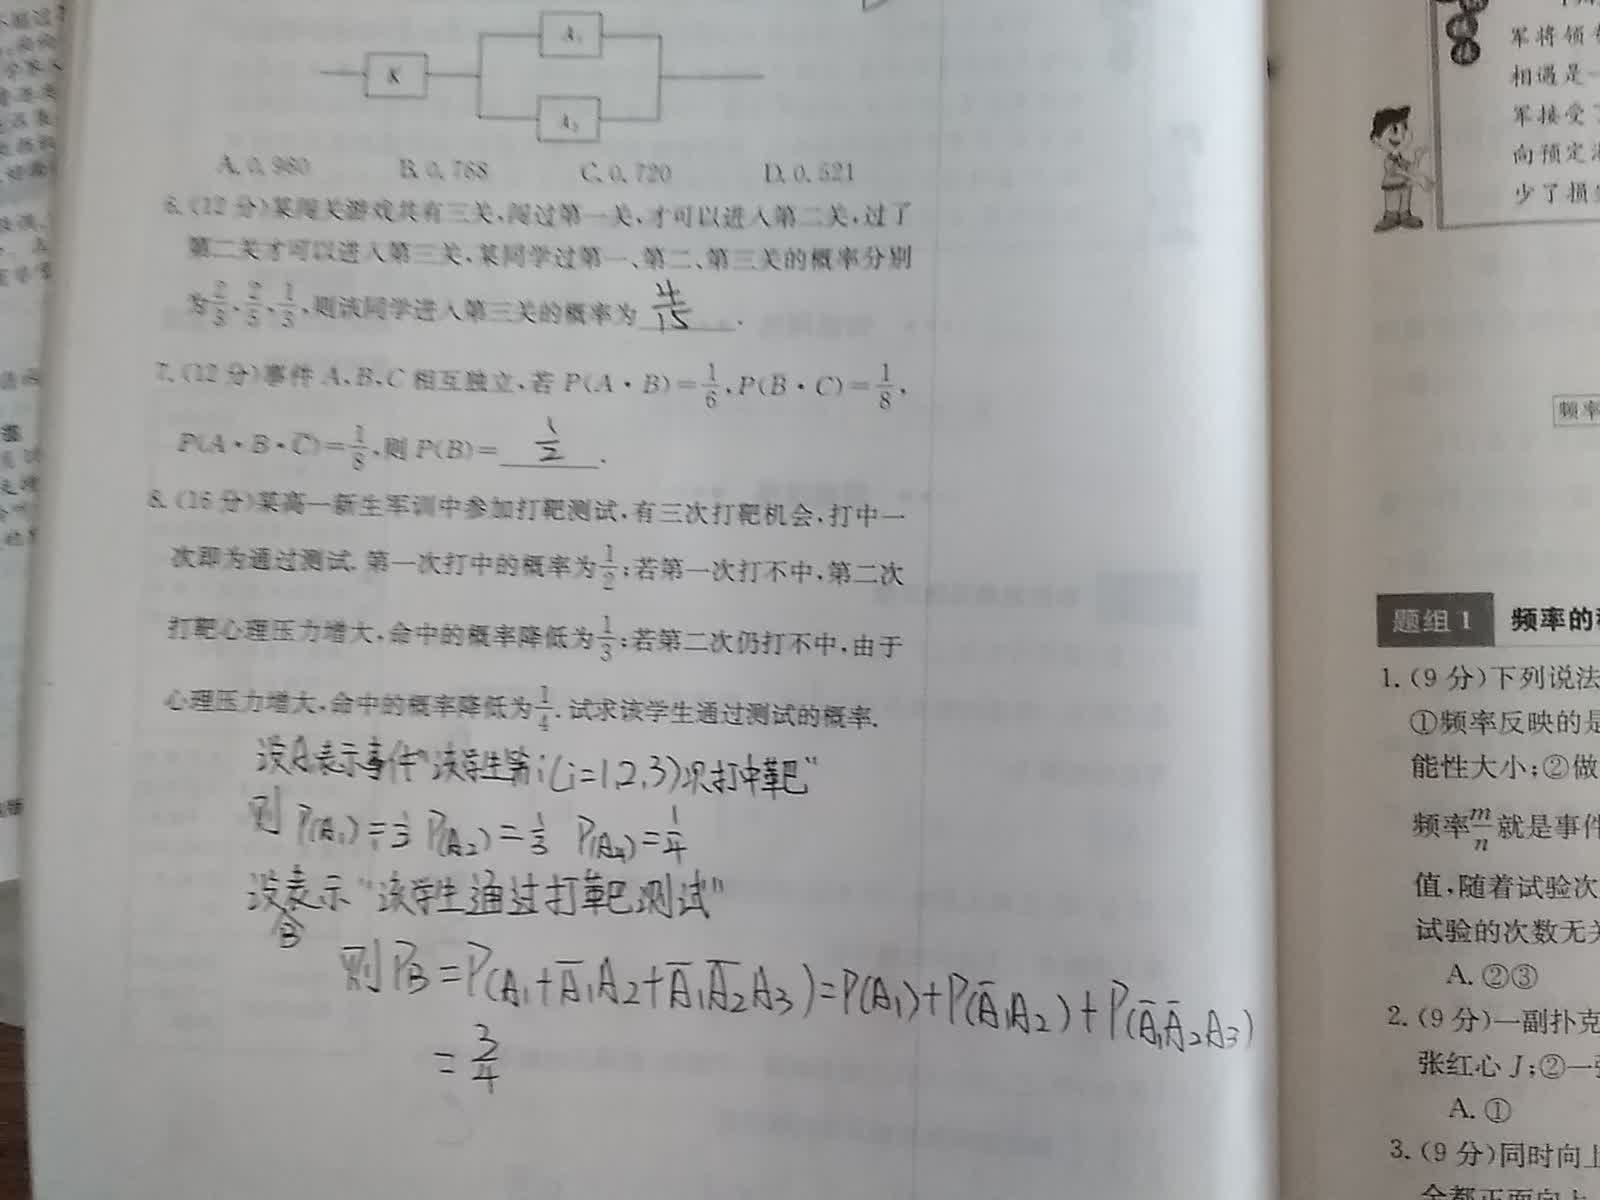 K
A₁
A₂
A. 0.960 B. 0.768 C. 0.720 D. 0.521
6. (12分)某闯关游戏共有三关,闯过第一关,才可以进入第二关,过了
第二关才可以进入第三关,某同学过第一、第二、第三关的概率分别
为2/3、2/5、1/3,则该同学进入第三关的概率为 4/15 .
7. (12分)事件 A、B、C 相互独立,若 P(A·B)=1/6,P(B̄·C)=1/8,
P(A·B·C̄)=1/8,则 P(B)= 1/2 .
8. (16分)某高一新生军训中参加打靶测试,有三次打靶机会,打中一
次即为通过测试. 第一次打中的概率为1/2;若第一次打不中,第二次
打靶心理压力增大,命中的概率降低为1/3;若第二次仍打不中,由于
心理压力增大,命中的概率降低为1/4. 试求该学生通过测试的概率.
设A表示事件"该学生第i(i=1,2,3)次打中靶"
则 P(A₁)=1/2 P(A₂)=1/3 P(A4)=1/4
设B表示"该学生通过打靶测试"
则PB=P(A₁+Ā₁A₂+Ā₁Ā₂A₃)=P(A₁)+P(Ā₁A₂)+P(Ā₁Ā₂A₃)
=3/4
军将领
相遇是一
军接受
向预定
少了损
频率
题组1 频率的
1. (9分)下列说法
①频率反映的是
能性大小;②做
频率m/n就是事件
值,随着试验次
试验的次数无关
A. ②③
2. (9分)一副扑克
张红心 J;②一
A. ①
3. (9分)同时向上